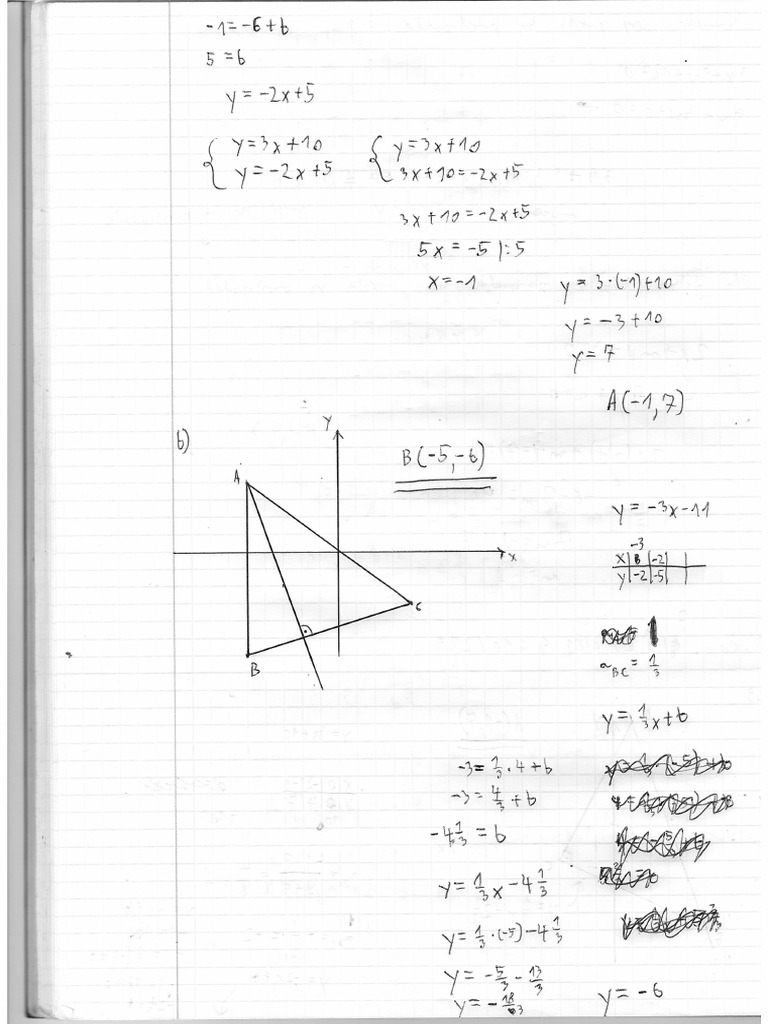 -1=-6+b
5=b
y=-2x+5
{y=3x+10 {y=3x+10
{y=-2x+5 {3x+10=-2x+5
3x+10=-2x+5
5x=-5|:5
x=-1 y=3·(-1)+10
y=-3+10
y=7
A(-1,7)
b)
y
A
B(-5,-6)
y=-3x-11
x
-3
x|B|-2|
y|-2|-5|
C
B
1
a BC = 1/3
y=1/3x+b
-3=1/3·4+b
-3=4/3+b
-4 1/3=b
y=1/3x-4 1/3
y=1/3·(-5)-4 1/3
y=-5/3-13/3
y=-18/3 y=-6